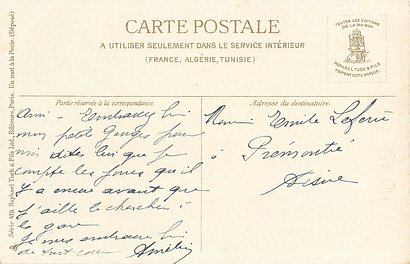 CARTE POSTALE
A UTILISER SEULEMENT DANS LE SERVICE INTÉRIEUR
(FRANCE, ALGÉRIE, TUNISIE)
TOUTES LES ÉDITIONS
DE LA MAISON
RAPHAEL TUCK & FILS
PORTENT CETTE MARQUE.
Partie réservée à la correspondance.
Adresse du destinataire.
Série 409. Raphael Tuck & Fils Ltd., Editeurs, Paris. Un mot à la Poste. (Déposé)
Ami - Embrassez bien
mon petit Georges pour
moi dites lui que je
compte les jours qu'il
y a encore avant que
j'aille le chercher à
la gare
Je vous embrasse bien
de tout cœur Amélie
Monsieur Emile
à Prémontré
Aisne